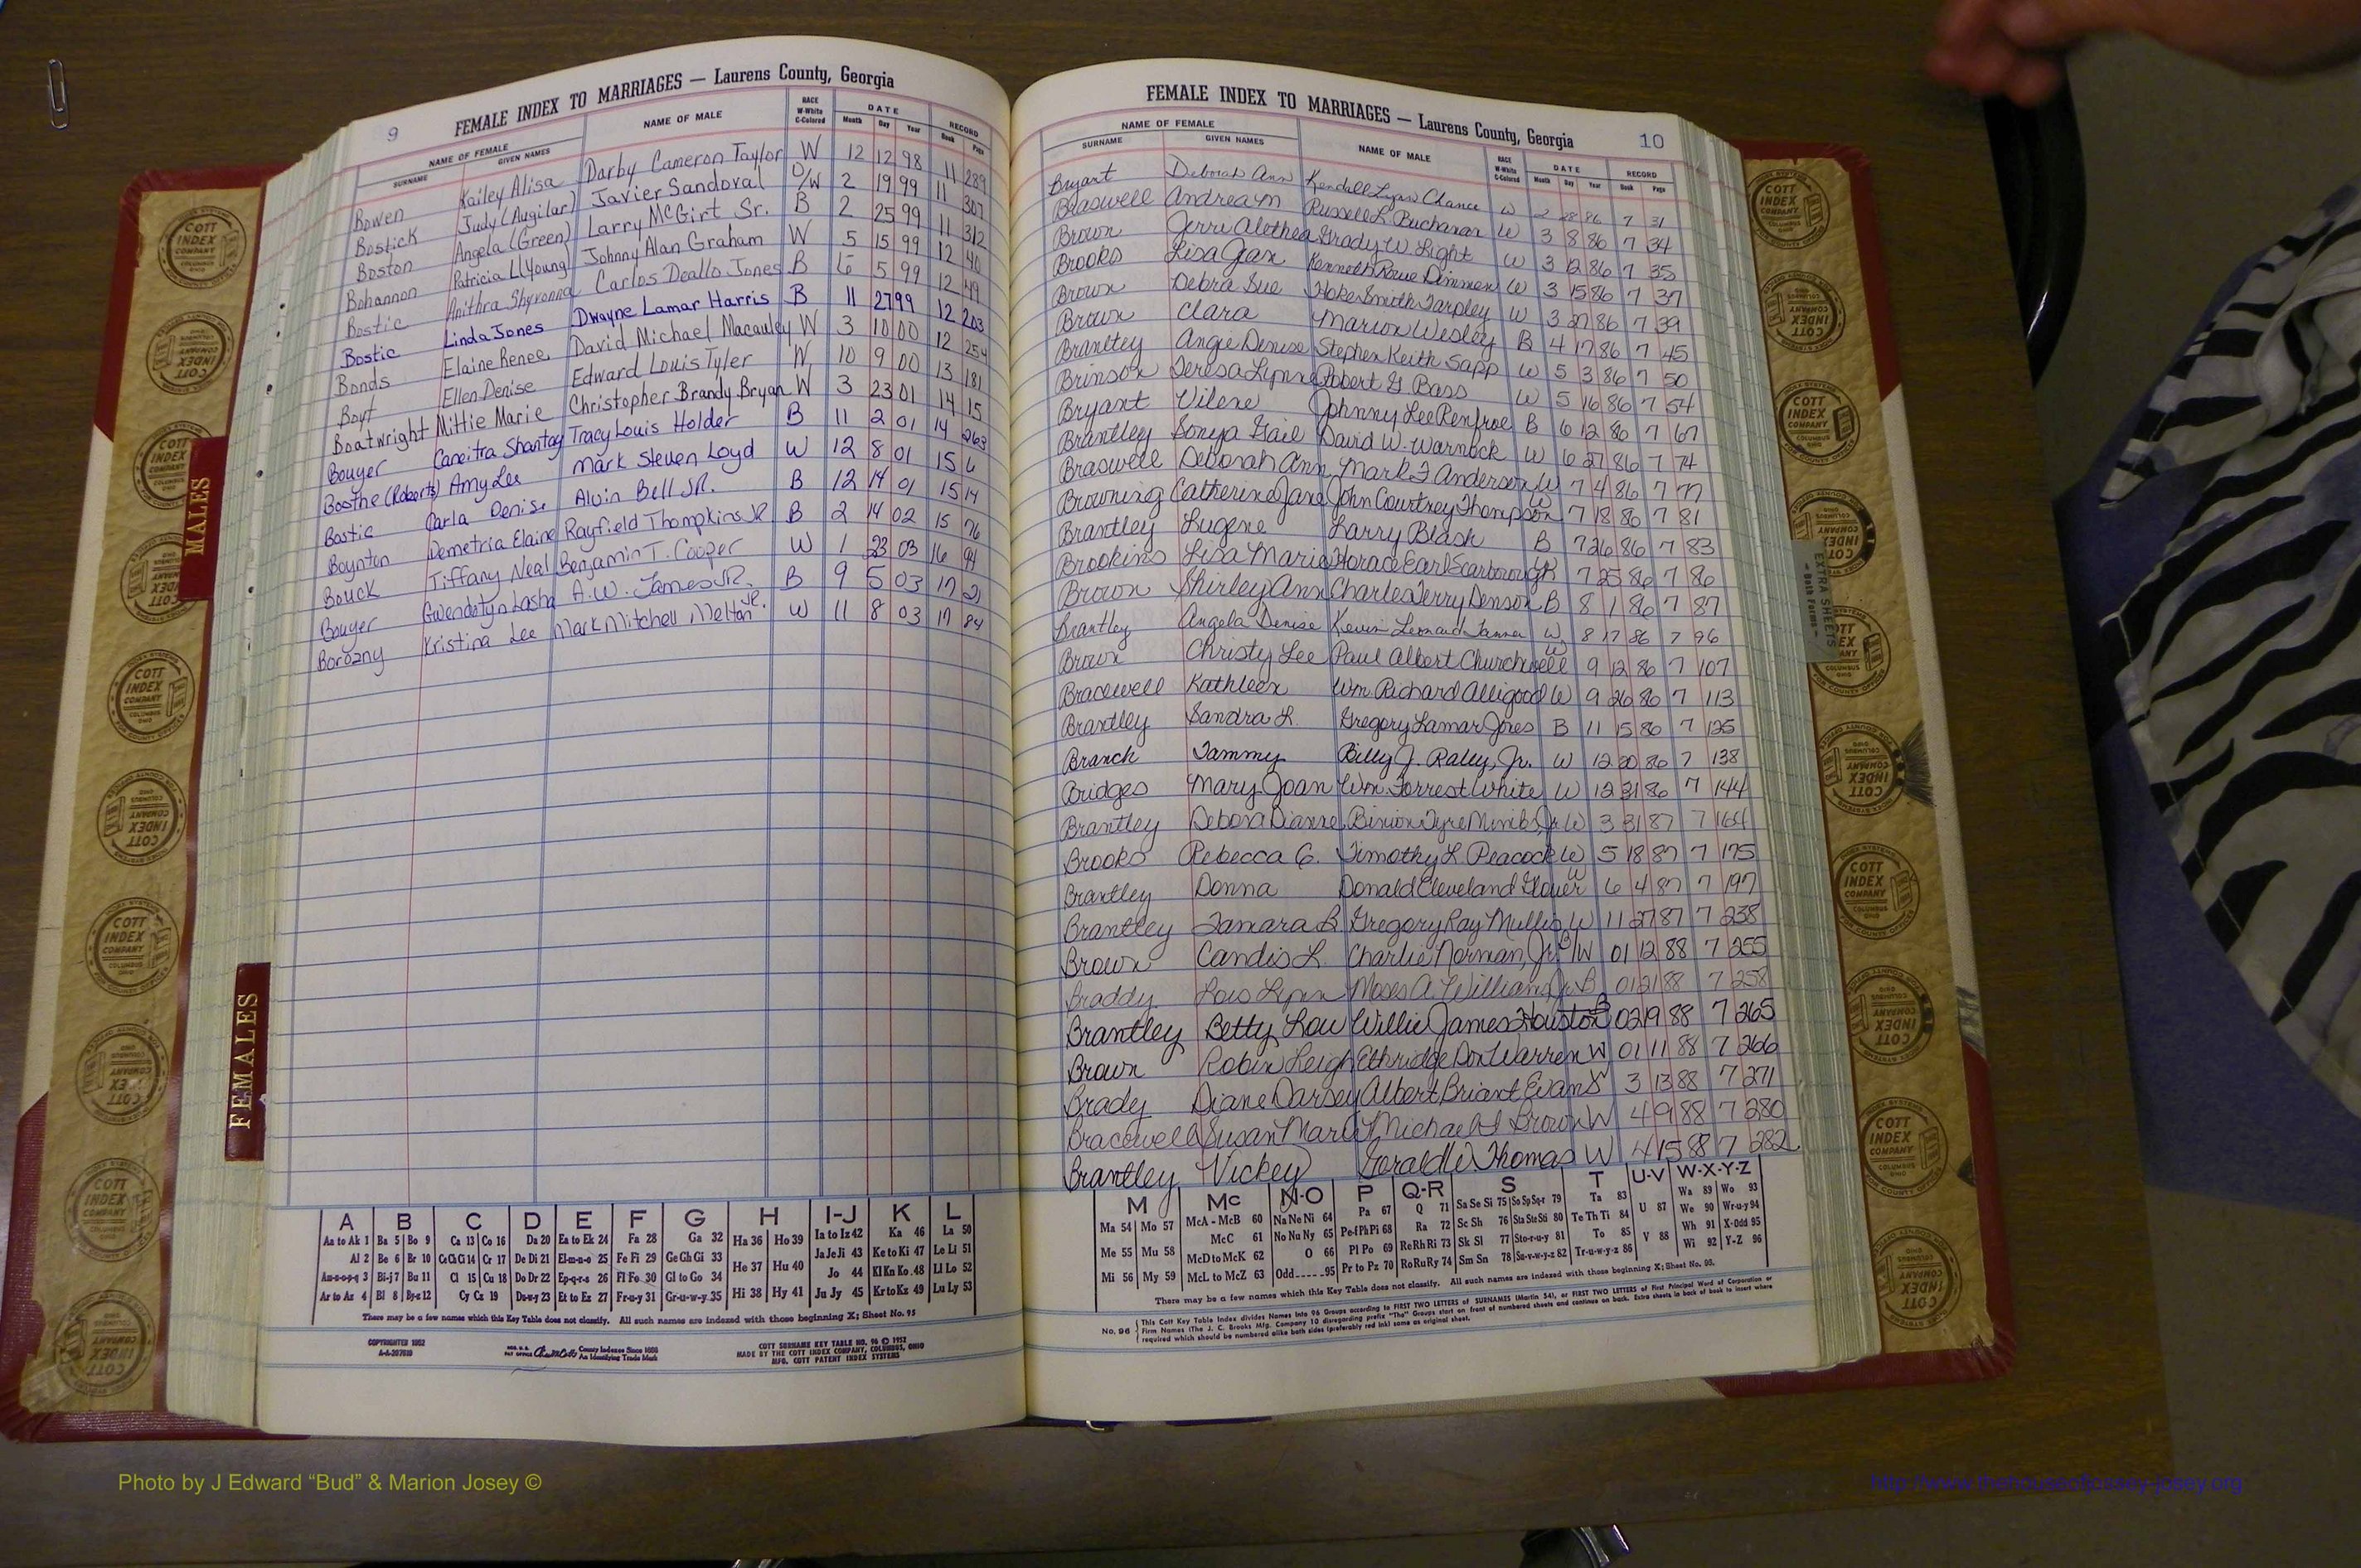 9
FEMALE INDEX TO MARRIAGES — Laurens County, Georgia
NAME OF FEMALE NAME OF MALE RACE W-White C-Colored DATE RECORD
SURNAME GIVEN NAMES Month Day Year Book Page
Bowen Kailey Alisa Darby Cameron Taylor W 12 12 98 11 289
Bostick Judy (Augilar) Javier Sandoval O/W 2 19 99 11 307
Boston Angela (Green) Larry McGirt Sr. B 2 25 99 11 312
Bohannon Patricia L (Young) Johnny Alan Graham W 5 15 99 12 40
Bostic Anithra Shyvonna Carlos Deallo Jones B 5 99 12 49
Bostic Linda Jones Dwayne Lamar Harris B 11 27 99 12 203
Bonds Elaine Renee David Michael Macauley W 3 10 00 12 254
Boyt Ellen Denise Edward Louis Tyler W 10 9 00 13 181
Boatwright Mittie Marie Christopher Brandy Bryan W 3 23 01 14 15
Bouyer Caneitra Shantay Tracy Louis Holder B 11 2 01 14 263
Boothe (Roberts) Amy Lee Mark Steven Loyd W 12 8 01 15 6
Bostic Carla Denise Alvin Bell JR. B 12 14 01 15 14
Boynton Demetria Elaine Rayfield Thompkins JR B 2 14 02 15 76
Bouck Tiffany Neal Benjamin T. Cooper W 1 23 03 16 94
Bouyer Gwendetyn Lasha A.W. James JR. B 9 5 03 17 21
Borozny Kristina Lee Mark Mitchell Melton JR. W 11 8 03 17 84
A B C D E F G H I-J K L
Aa to Ak 1 Ba 5 Bo 9 Ca 13 Co 16 Da 20 Ea to Ek 24 Fa 28 Ga 32 Ha 36 Ho 39 Ia to Iz 42 Ka 46 La 50
Al 2 Be 6 Br 10 CeChCi 14 Cr 17 De Di 21 El-m-n-o 25 Fe Fi 29 Ge Gh Gi 33 He 37 Hu 40 JaJeJi 43 Ke to Ki 47 Le Li 51
Am-n-o-p-q 3 Bi-j 7 Bu 11 Cl 15 Cu 18 Do Dr 22 Ep-q-r-s 26 Fl Fo 30 Gl to Go 34 Jo 44 Kl Kn Ko 48 Ll Lo 52
Ar to Az 4 Bl 8 By-z 12 Cy Cz 19 Du-w-y 23 Et to Ez 27 Fr-u-y 31 Gr-u-w-y 35 Hi 38 Hy 41 Ju Jy 45 Kr to Kz 49 Lu Ly 53
There may be a few names which this Key Table does not classify. All such names are indexed with those beginning X; Sheet No. 95
COPYRIGHTED 1952
County Indexes Since 1888
An Identifying Trade Mark
COTT SURNAME KEY TABLE NO. 96 © 1952
MADE BY THE COTT INDEX COMPANY, COLUMBUS, OHIO
MFG. COTT PATENT INDEX SYSTEMS
MALES
FEMALES
FEMALE INDEX TO MARRIAGES — Laurens County, Georgia
10
NAME OF FEMALE NAME OF MALE RACE W-White C-Colored DATE RECORD
SURNAME GIVEN NAMES Month Day Year Book Page
Bryant Deborah Ann Kendall Lynn Chance W 2 28 86 7 31
Braswell Andrea M Russell L. Buchanan W 3 8 86 7 34
Brown Jerri Alethea Grady W. Light W 3 12 86 7 35
Brooks Lisa Gax Kenneth Rowe Dimmen W 3 15 86 7 37
Brown Debra Sue Hoke Smith Tarpley W 3 27 86 7 39
Brown Clara Marion Wesley B 4 17 86 7 45
Brantley Angie Denise Stephen Keith Sapp W 5 3 86 7 50
Brinson Teresa Lynne Robert G. Bass W 5 16 86 7 54
Bryant Vilene Johnny Lee Renfroe B 6 12 86 7 67
Brantley Sonya Gail David W. Warnock W 6 27 86 7 74
Braswell Deborah Ann Mark F Anderson W 7 4 86 7 77
Browning Catherine Jane John Courtney Thompson W 7 18 86 7 81
Brantley Eugene Larry Blash B 7 26 86 7 83
Brookins Lisa Marie Horace Earl Scarborough W 7 25 86 7 86
Brown Shirley Ann Charles Jerry Denson B 8 1 86 7 87
Brantley Angela Denise Kevin Leonard Tanner W 8 17 86 7 96
Brown Christy Lee Paul Albert Churchwell W 9 12 86 7 107
Bracewell Kathleen Wm. Richard Alligood W 9 26 86 7 113
Brantley Sandra L. Gregory Lamar Jones B 11 15 86 7 125
Branch Tammy Billy J. Raley, Jr. W 12 20 86 7 138
Bridges Mary Joan Wm. Forrest White W 12 31 86 7 144
Brantley Debora Dianne Binion Tyre Mimbs, Jr. W 3 31 87 7 164
Brooks Rebecca G. Timothy L. Peacock W 5 18 87 7 175
Brantley Donna Donald Cleveland Glover W 6 4 87 7 197
Brantley Tamara B Gregory Ray Mullis W 11 27 87 7 238
Brown Candis L. Charlie Norman, Jr. B/W 01 12 88 7 255
Braddy Lois Lynn Moses A. Williams Jr. B 01 21 88 7 258
Brantley Betty Lou Willie James Houston B 02 19 88 7 265
Brown Robin Leigh Ethridge Don Warren W 01 11 88 7 266
Brady Diane Darsey Albert Briant Evans W 3 13 88 7 271
Bracewell Susan Marie Michael J Brown W 4 9 88 7 280
Brantley Vickey Gerald W Thomas W 4 15 88 7 282
M Mc N-O P Q-R S T U-V W-X-Y-Z
Ma 54 Mo 57 McA - McB 60 Na Ne Ni 64 Pa 67 Q 71 Sa Se Si 75 So Sp Sq-r 79 Ta 83 U 87 Wa 89 Wo 93
Me 55 Mu 58 McC 61 No Nu Ny 65 Pe-f Ph Pi 68 Ra 72 Sc Sh 76 Sta Ste Sti 80 Te Th Ti 84 We 90 Wr-u-y 94
McD to McK 62 O 66 Pl Po 69 Re Rh Ri 73 Sk Sl 77 Sto-r-u-y 81 To 85 V 88 Wh 91 X-Odd 95
Mi 56 My 59 McL to McZ 63 Odd 95 Pr to Pz 70 Ro Ru Ry 74 Sm Sn 78 Su-v-w-y-z 82 Tr-u-w-y-z 86 Wi 92 Y-Z 96
There may be a few names which this Key Table does not classify. All such names are indexed with those beginning X; Sheet No. 95.
No. 96 This Cott Key Table Index divides Names into 96 Groups according to FIRST TWO LETTERS of SURNAMES (Martin 54), or FIRST TWO LETTERS of First Principal Word of Corporation or
Firm Names (The J. C. Brooks Mfg. Company 10 disregarding prefix "The" Groups start on front of numbered sheets and continue on back. Extra sheets in back of book to insert where
required which should be numbered alike both sides (preferably red ink) same as original sheet.
EXTRA SHEETS
— Both Forms —
COTT INDEX COMPANY COLUMBUS OHIO
Photo by J Edward “Bud” & Marion Josey ©
http://www.thehouseofjossey-josey.org